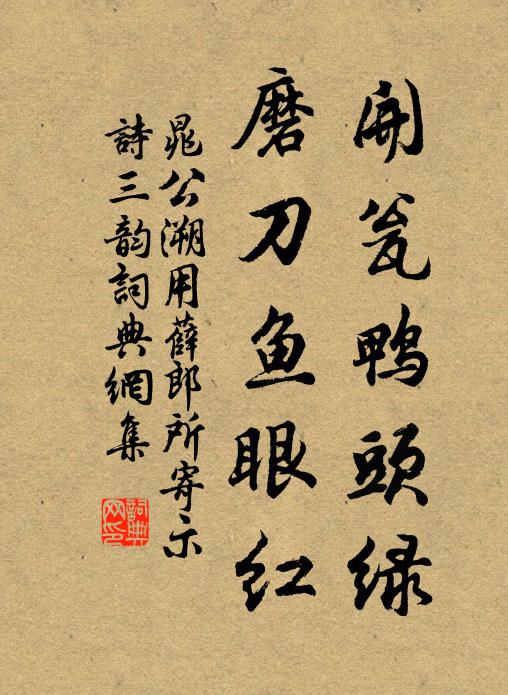 开瓮鸭头绿
磨刀鱼眼红
晁公溯用薛郎所寄示
詩三韵詞典網集
詞典网印